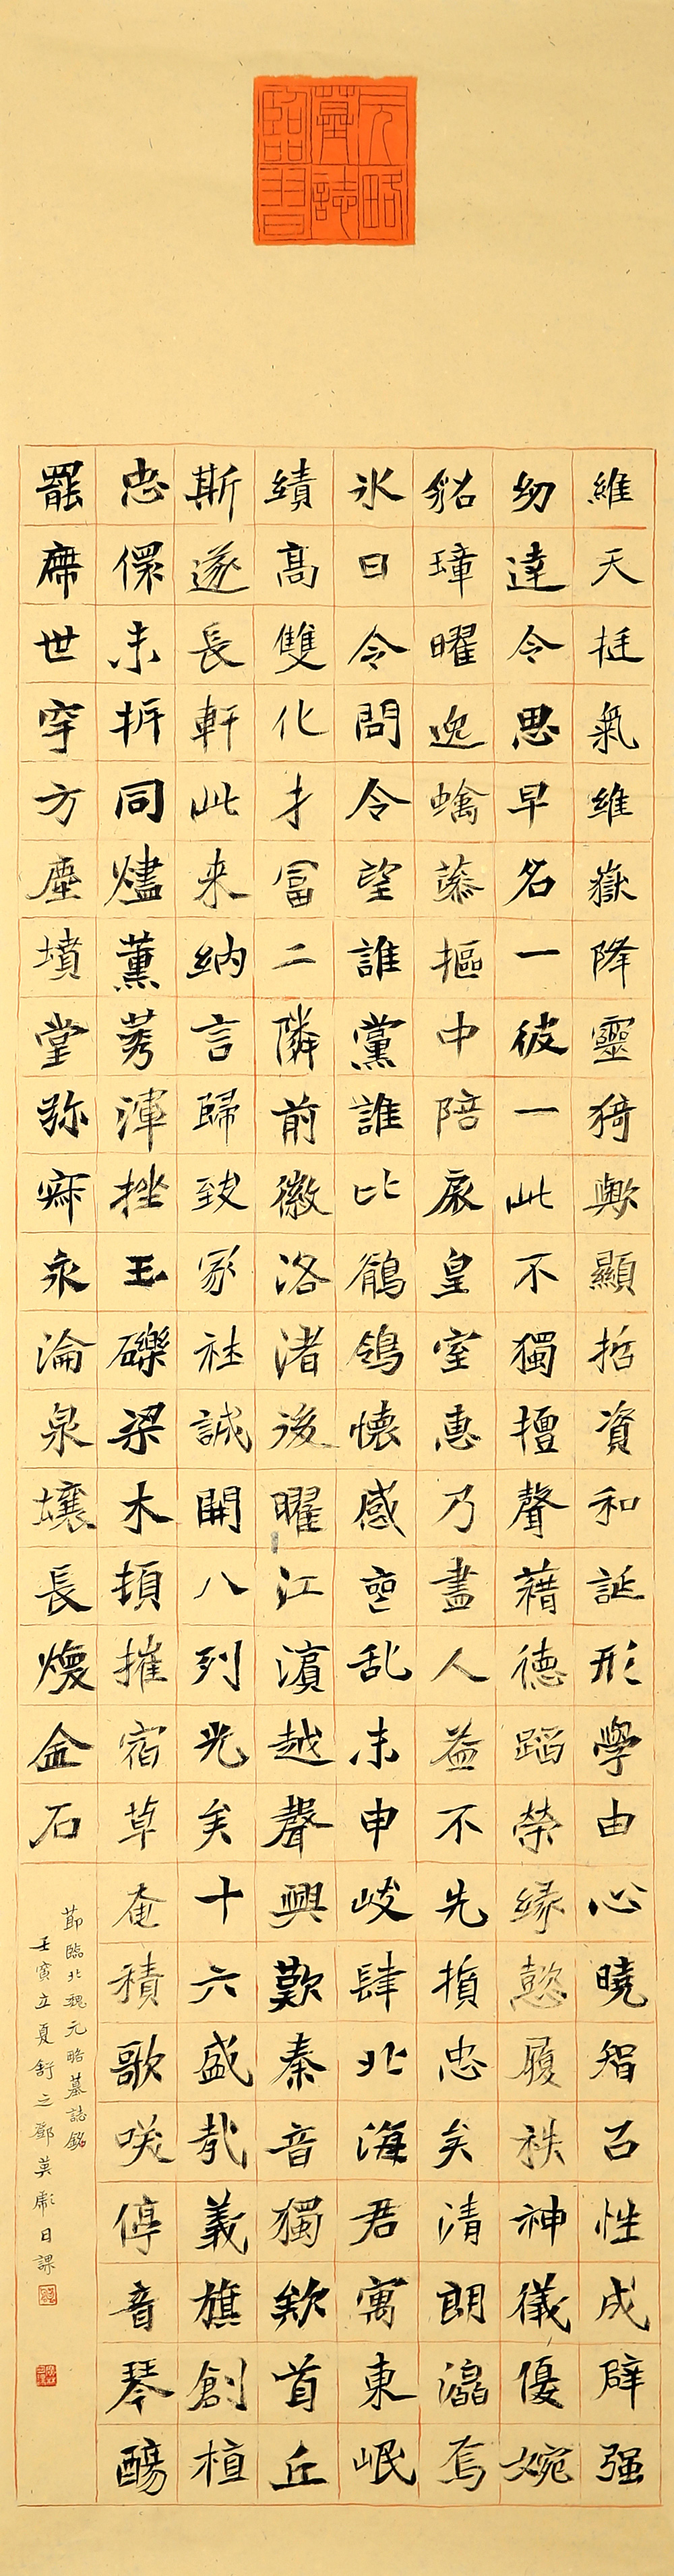 元略墓誌臨習
維天挺氣維嶽降靈猗歟顯哲資和誕形學由心曉智召性成辟强
幼達令思早名一彼一此不獨擅聲藉德蹈榮緣懿履秩神儀優婉
貂璋曜逸蟾蕣摳中陪扆皇室惠乃盡人益不先損忠矣清朗瀛焉
氷日令問令望誰黨誰比鶺鴒懷感喪乱未申歧肆北海君寓東岷
績高雙化才富二隣前徽洛渚後曜江濵越聲興歎秦音獨欸首丘
斯遂長軒此来納言歸致冢社誠開八列光矣十六盛哉義旗創植
忠儇未拆同燼薰莠渾挫玉礫梁木頓摧宿草奄積歌唉停音琴醻
罷席世穸方塵墳堂弥寐永淪泉壤長煥金石
節臨北魏元略墓誌銘
壬寅立夏舒之鄧莫彪日課